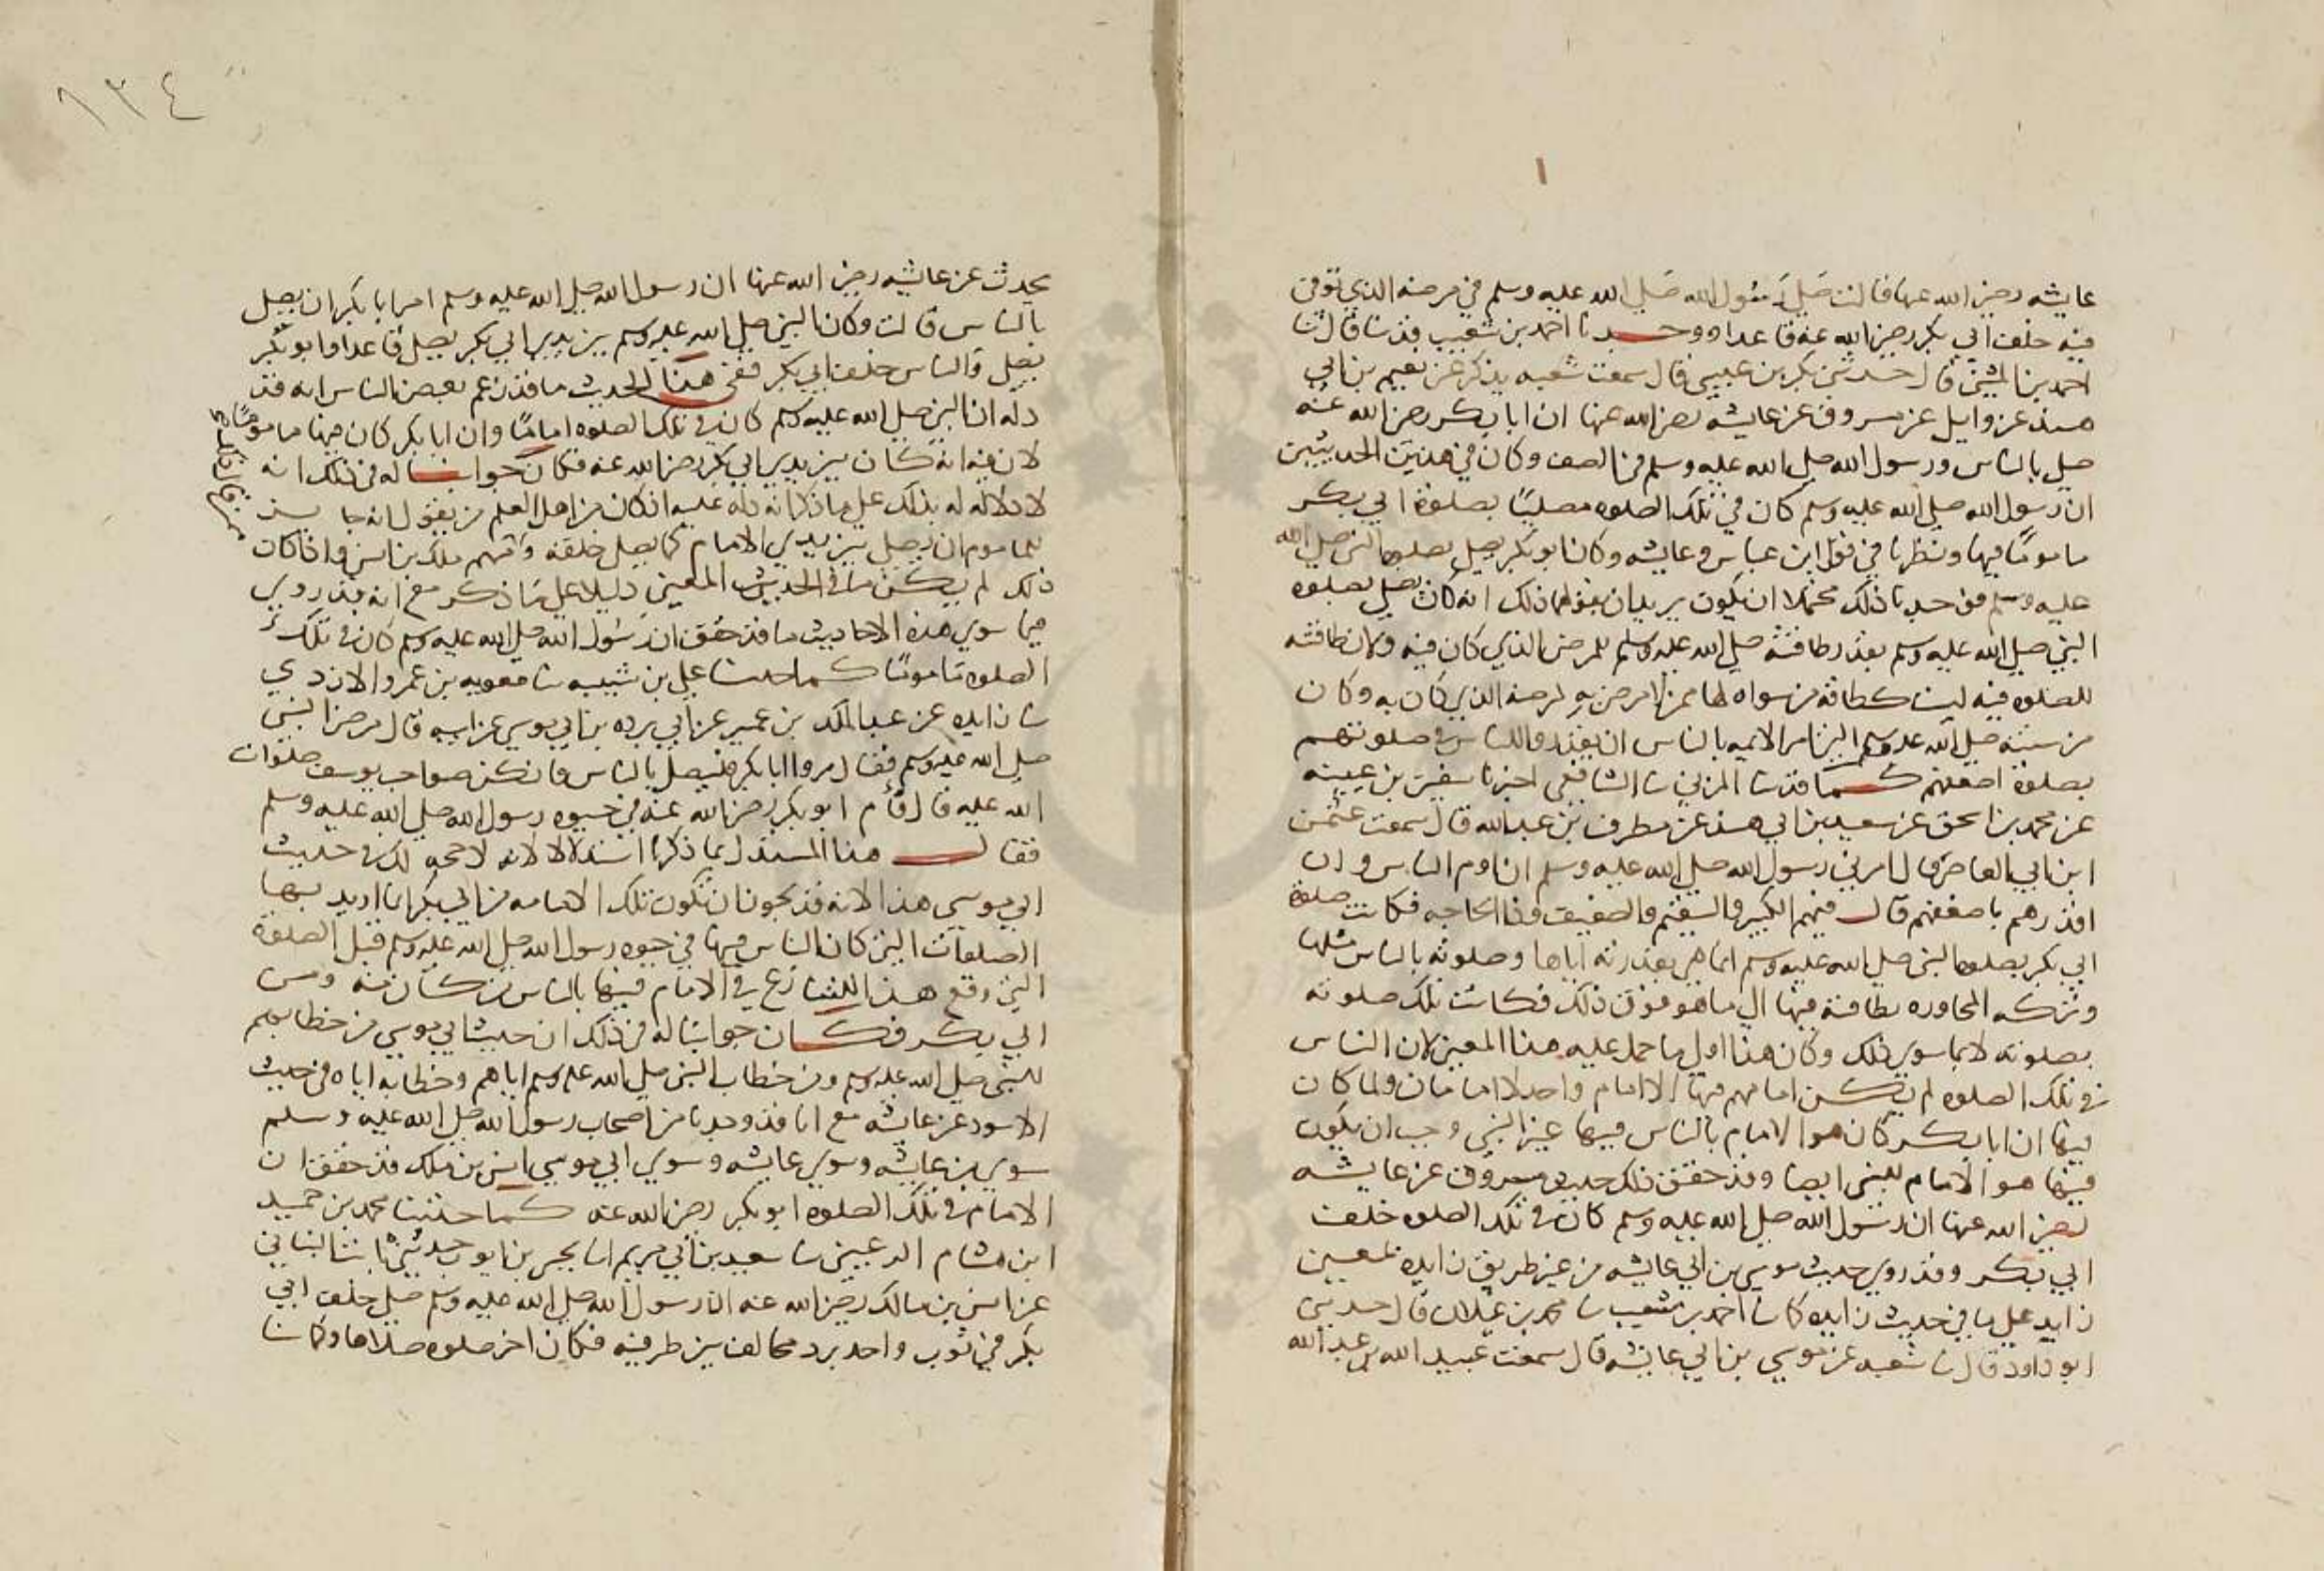 عايشه رضي الله عنها قالت صلى رسول الله صلى الله عليه وسلم في مرضه الذي توفي
فيه خلف ابي بكر رضي الله عنه قاعدا ووحـــدنا احمد بن شعيب قد نا قال نا
احمد بن المثنى قال حدثني بكر بن عيسى قال سمعت شعبه يذكر عن نعيم بن ابي
هند عن وايل عن مسروق عن عايشه رضي الله عنها ان ابا بكر رضي الله عنه
صلى بالناس ورسول الله صلى الله عليه وسلم في الصف وكان في هذين الحديثين
ان رسول الله صلى الله عليه وسلم كان في تلك الصلوه مصليًا بصلوة ابي بكر
مامومًا فيها ونظرنا في قول ابن عباس وعايشه وكان ابو بكر يصلي بصلوه النبي صلى الله
عليه وسلم فوجدنا ذلك محتملا ان يكون يريدان بقولهما ذلك انه كان يصلي بصلوه
النبي صلى الله عليه وسلم بقدر طاقته صلى الله عليه وسلم للمرض الذي كان فيه وكان طاقته
للصلوه فيه ليست كطاقة من سواه لها ممن لا مرض به لمرضه الذي كان به وكان
من سنته صلى الله عليه وسلم التي امر الايمه بالناس ان يقدروا الناس في صلوتهم
بصلوة اضعفهم كـــما قد نا المزني نا الشافعي اخبرنا سفين بن عيينه
عن محمد بن اسحق عن سعيد بن ابي هند عن مطرف بن عبد الله قال سمعت عثمن
ابن ابي العاص قال امرني رسول الله صلى الله عليه وسلم ان اوم الناس وان
اقدرهم باضعفهم قالـــ فيهم الكبير والسقيم والضعيف وذا الحاجه فكانت صلوة
ابي بكر بصلوه النبي صلى الله عليه وسلم انما هي بقدرته اياها وصلوته بالناس مثلها
وتركه المجاوزه بطاقته فيها الى ما هو فوق ذلك فكانت تلك صلوته
بصلوته لا بما سوى ذلك وكان هذا اولى ما حمل عليه هذا المعنى لان الناس
في تلك الصلوه لم يكــن امامهم فيها الا امام واحد لا امامان ولما كان
فيها ان ابا بكر كان هو الامام بالناس فيها غير النبي وجب ان يكون
فيها هو الامام للنبي ايضا وقد حقق ذلك حديث مسروق عن عايشه
رضي الله عنها ان رسول الله صلى الله عليه وسلم كان في تلك الصلوه خلف
ابي بكر وقد روي حديث موسى بن ابي عايشه من غير طريق زايده بمعنى
زايد على ما في حديث زايده كما نا احمد بن شعيب نا محمد بن غيلان قال حدثني
ابو داود قال نا شعبه عن موسى بن ابي عايشه قال سمعت عبيد الله بن عبد الله
١٣٤
يحدث عن عايشه رضي الله عنها ان رسول الله صلى الله عليه وسلم امر ابا بكر ان يصلي
بالناس قالت وكان النبي صلى الله عليه وسلم بين يدي ابي بكر يصلي قاعدا وابو بكر
يصلي والناس خلف ابي بكر ففي هذا الحديث ما قد زعم بعض الناس انه قد
دله ان النبي صلى الله عليه وسلم كان في تلك الصلوه امامًا وان ابا بكر كان فيها مامومًا
لان فيه انه كان بين يدي ابي بكر رضي الله عنه فكان جوابنـــا له في ذلك انه
لا دلاله له بذلك على ما ذكر انه دله عليه اذ كان من اهل العلم من يقول انه جايز
للماموم ان يصلي بين يدي الامام كما يصلي خلفه ومنهم ملك بن انس واذا كان
ذلك لم يكن ما في الحديث المعنى دليلا على ما ذكر مع انه قد روي
فيما سوى هذه الاحاديث ما قد حقق ان رسول الله صلى الله عليه وسلم كان في تلك
الصلوه مامومًا كـــما حدثنا علي بن شيبه نا معويه بن عمرو الازدي
نا زايده عن عبد الملك بن عمير عن ابي برده بن ابي موسى عن ابيه قال مرض النبي
صلى الله عليه وسلم فقال مروا ابا بكر فليصل بالناس فانكن صواحب يوسف صلوات
الله عليه قال فام ابو بكر رضي الله عنه في حيوه رسول الله صلى الله عليه وسلم
فقالـــ هذا المستدل بما ذكرنا استدلالا لانه لا حجه لك في حديث
ابي موسى هذا لانه قد يجوز ان تكون تلك الامامه من ابي بكر انما اريد بها
الصلوات التي كان الناس فيها في حيوه رسول الله صلى الله عليه وسلم قبل الصلوة
التي وقع هذا التنازع في الامام فيها بالناس من كان منه ومن
ابي بكر فكـــان جوابنا له في ذلك ان حديث ابي موسى من خطابهم
للنبي صلى الله عليه وسلم ومن خطاب النبي صلى الله عليه وسلم اياهم وخطابه اياه في حديث
الاسود عن عايشه مع انا قد وجدنا من اصحاب رسول الله صلى الله عليه وسلم
سوى بن عايشه وسوى عايشه وسوى ابي موسى انس بن ملك قد حقق ان
الامام في تلك الصلوه ابو بكر رضي الله عنه كـــما حدثنا محمد بن حميد
ابن هشام الرعيني نا سعيد بن ابي مريم انا يحيى بن ايوب حدثني ثابت البناني
عن انس بن مالك رضي الله عنه ان رسول الله صلى الله عليه وسلم صلى خلف ابي
بكر في ثوب واحد برد مخالف بين طرفيه فكان اخر صلوه صلاها وكما نا